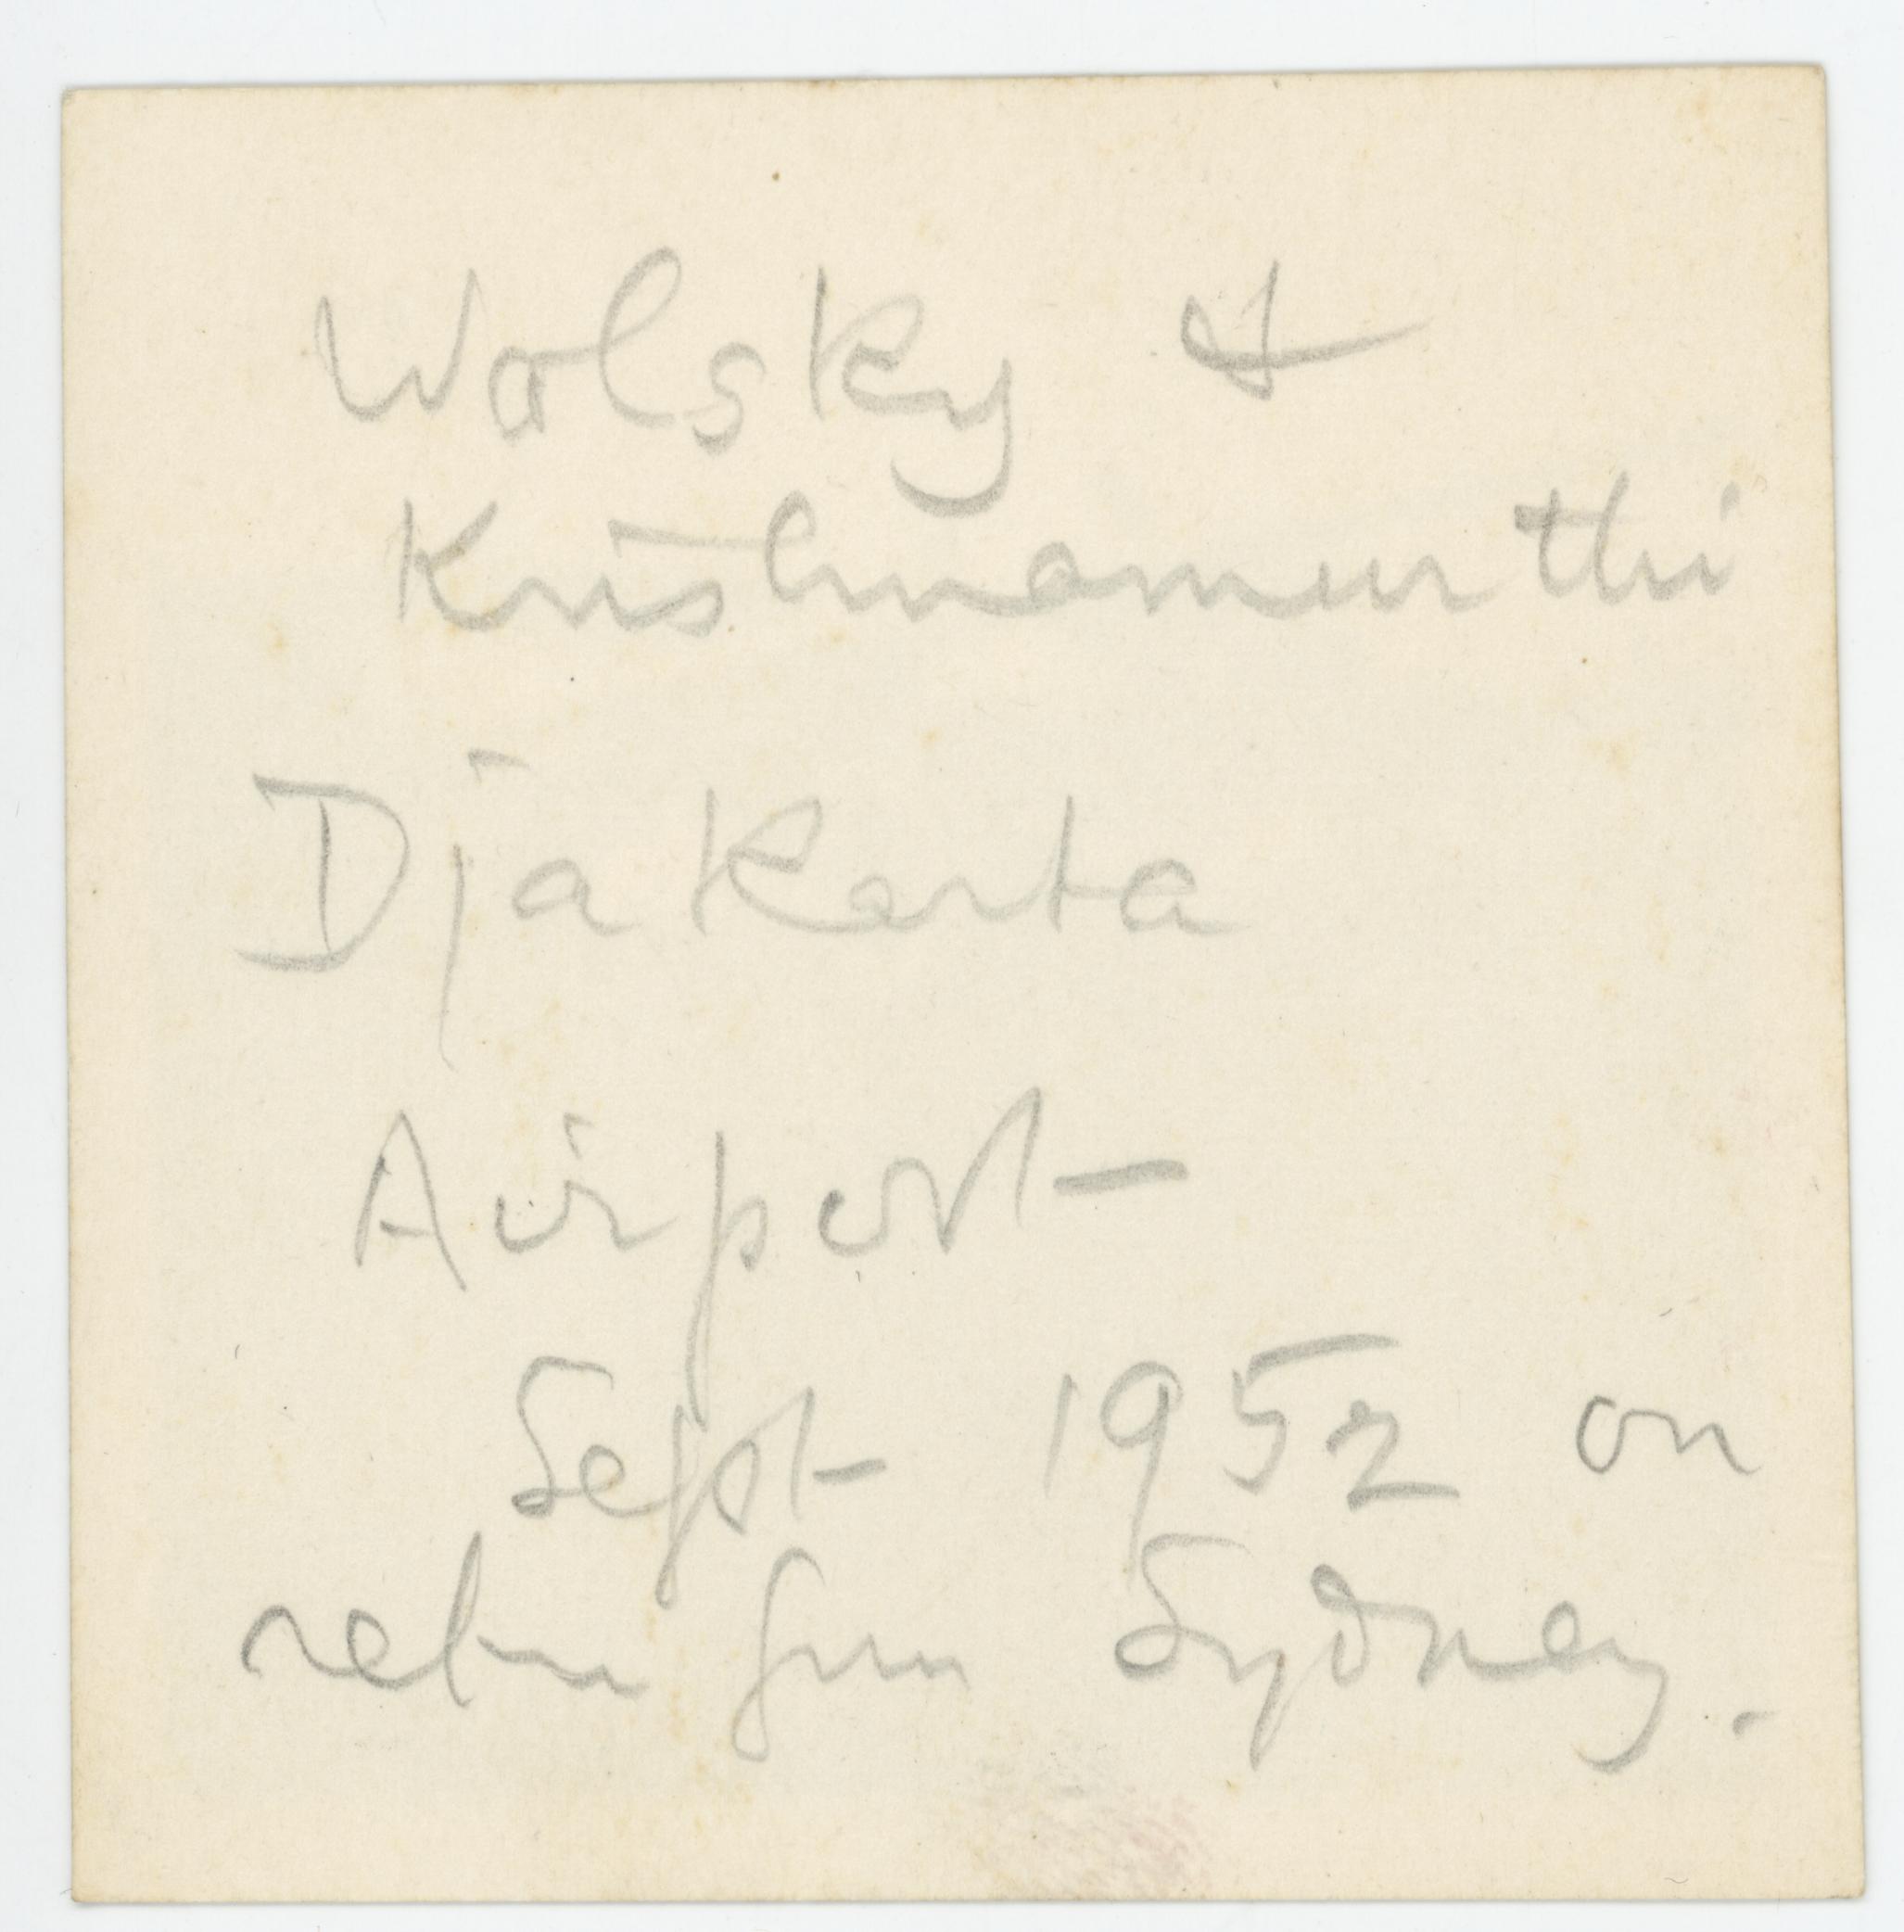 Wolsky &
Krishnamurthi
Djakarta
Airport
Sept 1952 on
return from Sydney.